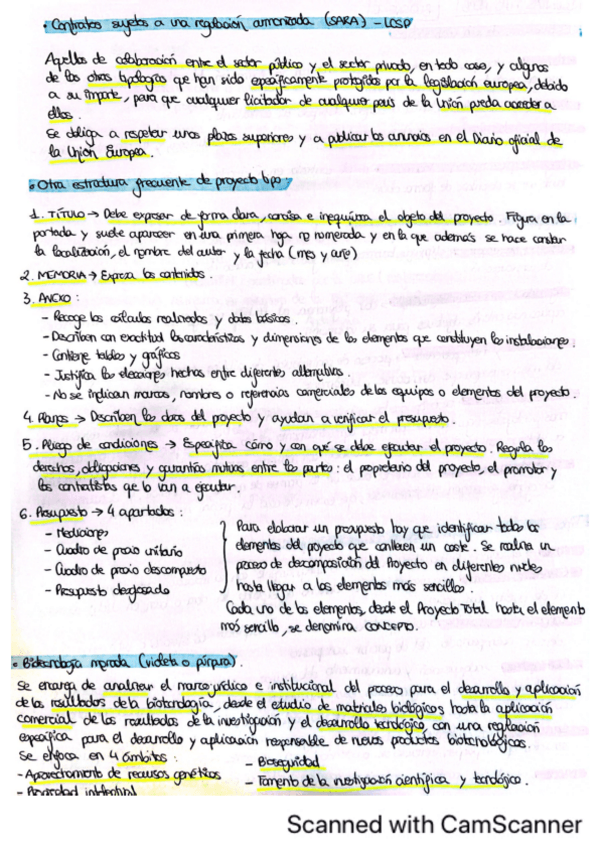 · Contratos sujetos a una regulación armonizada (SARA) - LCSP
Aquellos de colaboración entre el sector público y el sector privado, en todo caso, y algunos
de los otros tipologías que han sido específicamente protegidos por la legislación europea, debido
a su importe, para que cualquier licitador de cualquier país de la Unión pueda acceder a
ellos.
Se obliga a respetar unos plazos superiores y a publicar los anuncios en el Diario oficial de
la Unión Europea.
· Otra estructura frecuente de proyecto tipo
1. TÍTULO → Debe exponer de forma clara, concisa e inequívoca el objeto del proyecto. Figura en la
portada y suele aparecer en una primera hoja no numerada y en la que además se hace constar
la localización, el nombre del autor y la fecha (mes y año)
2. MEMORIA → Expresa los contenidos.
3. ANEXO:
- Recoge los cálculos realizados y datos básicos.
- Describen con exactitud las características y dimensiones de los elementos que constituyen las instalaciones.
- Contiene tablas y gráficos
- Justifica las elecciones hechas entre diferentes alternativas.
- No se indican marcas, nombres o referencias comerciales de los equipos o elementos del proyecto.
4. Planos → Describen los datos del proyecto y ayudan a verificar el presupuesto.
5. Pliego de condiciones → Especifica cómo y con qué se debe ejecutar el proyecto. Regula los
derechos, obligaciones y garantías mutuas entre las partes: el propietario del proyecto, el promotor y
los contratistas que lo van a ejecutar.
6. Presupuesto → 4 apartados:
- Mediciones
- Cuadro de precio unitario
- Cuadro de precio descompuesto
- Presupuesto desglosado
Para elaborar un presupuesto hay que identificar todos los
elementos del proyecto que conlleven un coste. Se realiza un
proceso de descomposición del Proyecto en diferentes niveles
hasta llegar a los elementos más sencillos.
Cada uno de los elementos, desde el Proyecto Total hasta el elemento
más sencillo, se denomina CONCEPTO.
· Biotecnología morada (violeta o púrpura).
Se encarga de analizar el marco jurídico e institucional del proceso para el desarrollo y aplicación
de los resultados de la biotecnología, desde el estudio de materiales biológicos hasta la aplicación
comercial de los resultados de la investigación y el desarrollo tecnológico con una regulación
específica para el desarrollo y aplicación responsable de nuevos productos biotecnológicos.
Se enfoca en 4 ámbitos:
- Aprovechamiento de recursos genéticos
- Propiedad intelectual
- Bioseguridad
- Fomento de la investigación científica y tecnológica.
Scanned with CamScanner